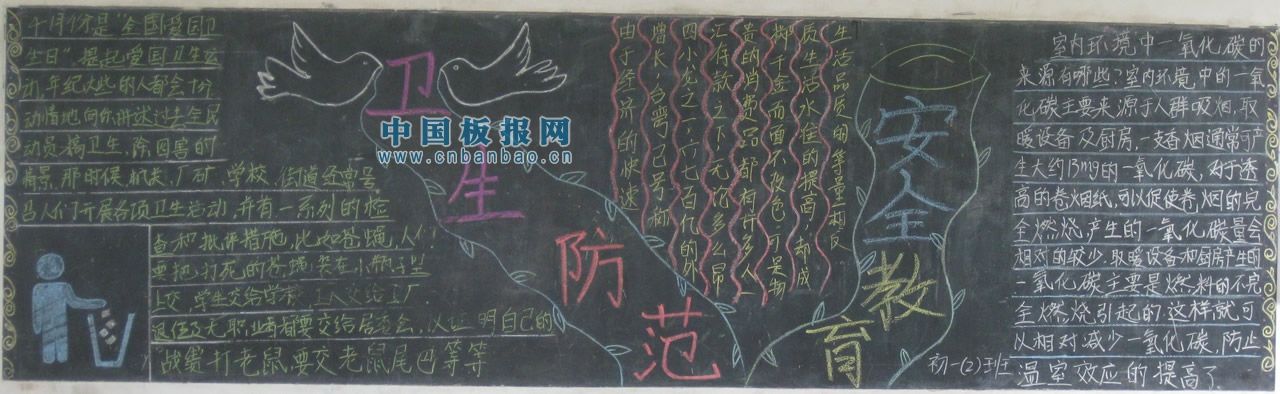 4月份是"全国爱国卫
生日"提起爱国卫生运
动,年纪大些的人都会十分
动情地向你讲述过去全民
动员搞卫生,除四害的
情景,那时候,机关,厂矿,学校,街道经常号
召人们开展各项卫生活动,并有一系列的检
查和批评措施,比如苍蝇,人们
要把打死的苍蝇装在小瓶子里
上交,学生交给学校,工人交给工厂
退休及无职业者都要交给居委会,以证明自己的
"战绩"打老鼠,要交老鼠尾巴等等
卫生
防范
安全
教育
中国板报网
www.cnbanbao.cn
生活品质的等量相反
质生活水准的提高,却成
掷千金而面不改色,可是物
贵的消费品都有许多人一
汇存款之下,无论多么昂
四小龙之一,六七百亿的外
增长,台湾已号称
由于经济的快速
室内环境中一氧化碳的
来源有哪些?室内环境中的一氧
化碳主要来源于人群吸烟,取
暖设备及厨房,一支香烟通常可产
生大约13mg的一氧化碳,对于透
高的卷烟纸,可以促使卷烟的完
全燃烧,产生的一氧化碳量会
相对的较少,取暖设备和厨房产生的
一氧化碳主要是燃料的不完
全燃烧引起的,这样就可
以相对减少一氧化碳,防止
温室效应的提高了
初一(2)班